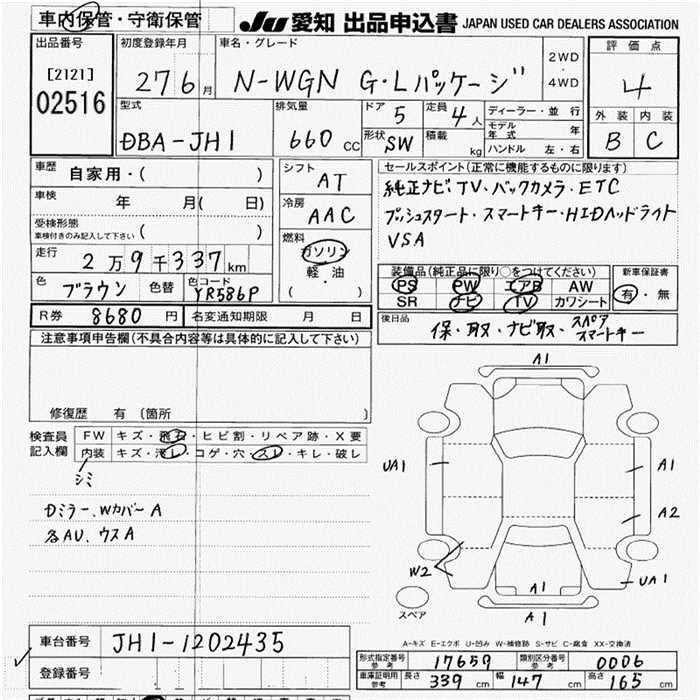 車内保管・守衛保管
JU 愛知 出品申込書 JAPAN USED CAR DEALERS ASSOCIATION
出品番号
[2121]
02516
初度登録年月
27 6 月
車名・グレード
N-WGN G・Lパッケージ
2WD
・
4WD
評価点
4
外装 内装
B C
型式
DBA-JH1
排気量
660 CC
ドア 5
定員 4 人
形状 SW
積載 kg
ディーラー・並行
モデル年式 年
ハンドル 左・右
車歴 自家用・( )
車検 年 月( 日)
受検形態
車検付きのみ記入して下さい ( )
走行 2万9千337km
色 ブラウン 色替 色コード YR586P
シフト
AT
冷房
AAC
燃料
ガソリン
軽・油
( )
セールスポイント(正常に機能するものに限ります)
純正ナビTV・バックカメラ・ETC
プッシュスタート・スマートキー・HIDヘッドライト
VSA
装備品(純正品に限り○をつけてください)
PS PW エアB AW
SR ナビ TV カワシート
新車保証書
有・無
R券 8680 円 名変通知期限 月 日
後日品 保・取・ナビ取・スペアスマートキー
注意事項申告欄(不具合内容等は具体的に記入して下さい)
修復歴 有 (箇所 )
検査員
記入欄
FW キズ・飛石・ヒビ割・リペア跡・X要
内装 キズ・汚レ・コゲ・穴・スレ・キレ・破レ
シミ
Dミラー、WカバーA
各AU、ウスA
A1
UA1
A1
A2
W2
UA1
A1
A1
スペア
A-キズ E-エクボ U-凹み W-補修跡 S-サビ C-腐食 XX-交換済
車台番号 JH1-1202435
登録番号
形式指定番号 参考 17659 類別区分番号 参考 0006
車庫証明用 参考 長さ 339 cm 幅 147 cm 高さ 165 cm